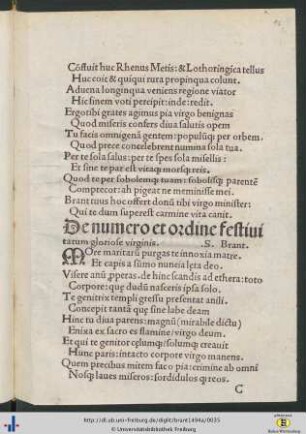 Cōfluit huc Rhenus Metis: & Lothoringica tellus
Huc coit & quiqui rura propinqua colunt.
Aduena longinqua veniens regione viator
Hic finem voti percipit: inde: redit.
Ergo tibi grates agimus pia virgo benignas
Quod miseris confers diua salutis opem
Tu facis omnigenā gentem: populūq; per orbem.
Quod prece concelebrent numina sola tua.
Per te sola salus: per te spes sola misellis:
Et sine te par est vitaq; morsq; reis.
Quod te per sobolemq; tuam: sobolisq; parentē
Comprecor: ah pigeat ne meminisse mei.
Brant titus hoc offert donū tibi virgo minister:
Qui te dum superest carmine vita canit.
De numero et ordine festiui
tatum gloriose virginis. .S. Brant.
MOre maritarū purgas te innoxia matrē
Et capis a summo neuma leta deo.
Visere anū properas: de hinc scandis ad ethera: toto
Corpore: que dudū nasceris ipso solo.
Te genitrix templi gressu presentat anili.
Concepit tantā que sine labe deam
Hinc tu diua parens: magnū (mirabile dictu)
Enixa ex sacro es flamine: virgo deum.
Et qui te genitor celumq; solumq; creauit
Hunc paris: intacto corpore virgo manens.
Quem precibus mitem faco pia: crimine ab omni
Nosq; laues miseros: sordidulosq; reos.
C
http://dl.ub.uni-freiburg.de/diglit/brant1494a/0035
© Universitätsbibliothek Freiburg